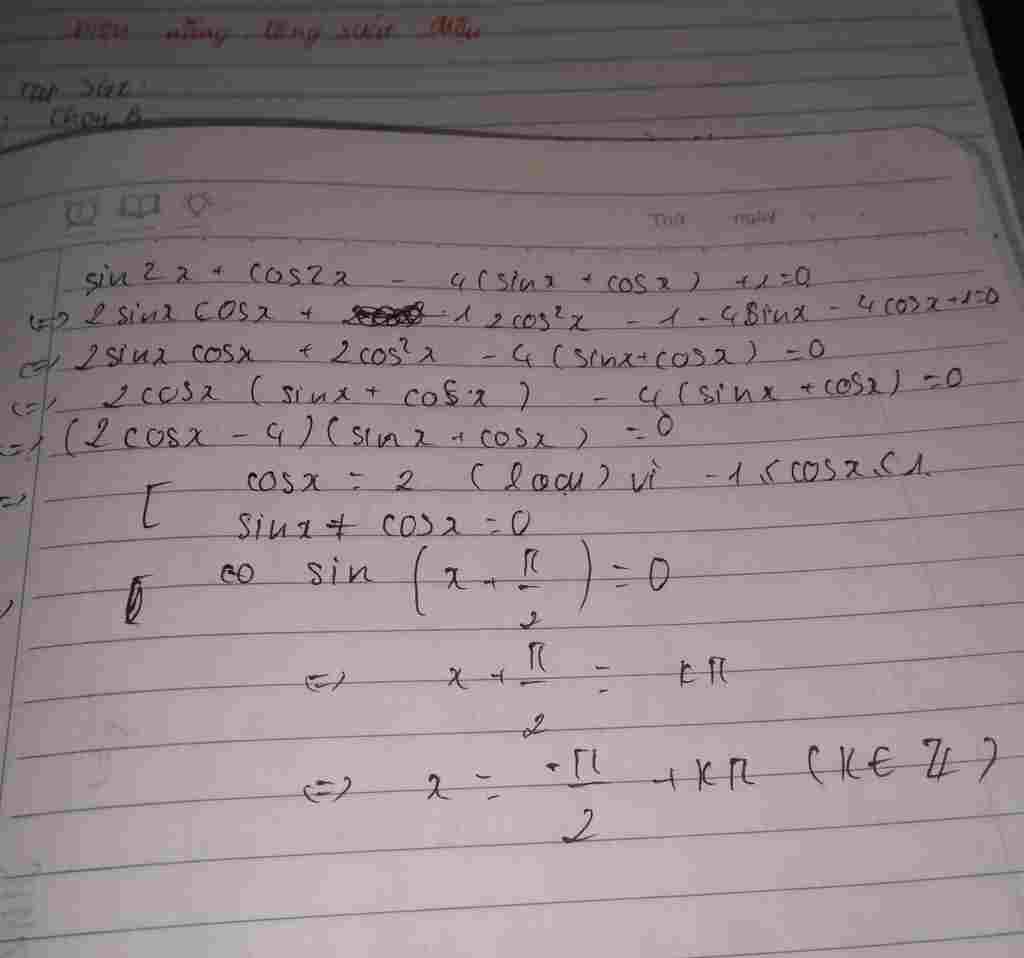 năng lãng
Chọn B
Thứ ngày
sin2x + cos2x - 4(sinx + cosx) + 1 = 0
<=> 2sinx cosx + 2cos²x - 1 - 4sinx - 4cosx + 1 = 0
<=> 2sinx cosx + 2cos²x - 4(sinx + cosx) = 0
<=> 2cosx (sinx + cosx) - 4(sinx + cosx) = 0
<=> (2cosx - 4)(sinx + cosx) = 0
<=> [ cosx = 2 (loại) vì -1 ≤ cosx ≤ 1.
sinx + cosx = 0
<=> sin (x + π/2) = 0
<=> x + π/2 = kπ
<=> x = -π/2 + kπ (k ∈ Z)